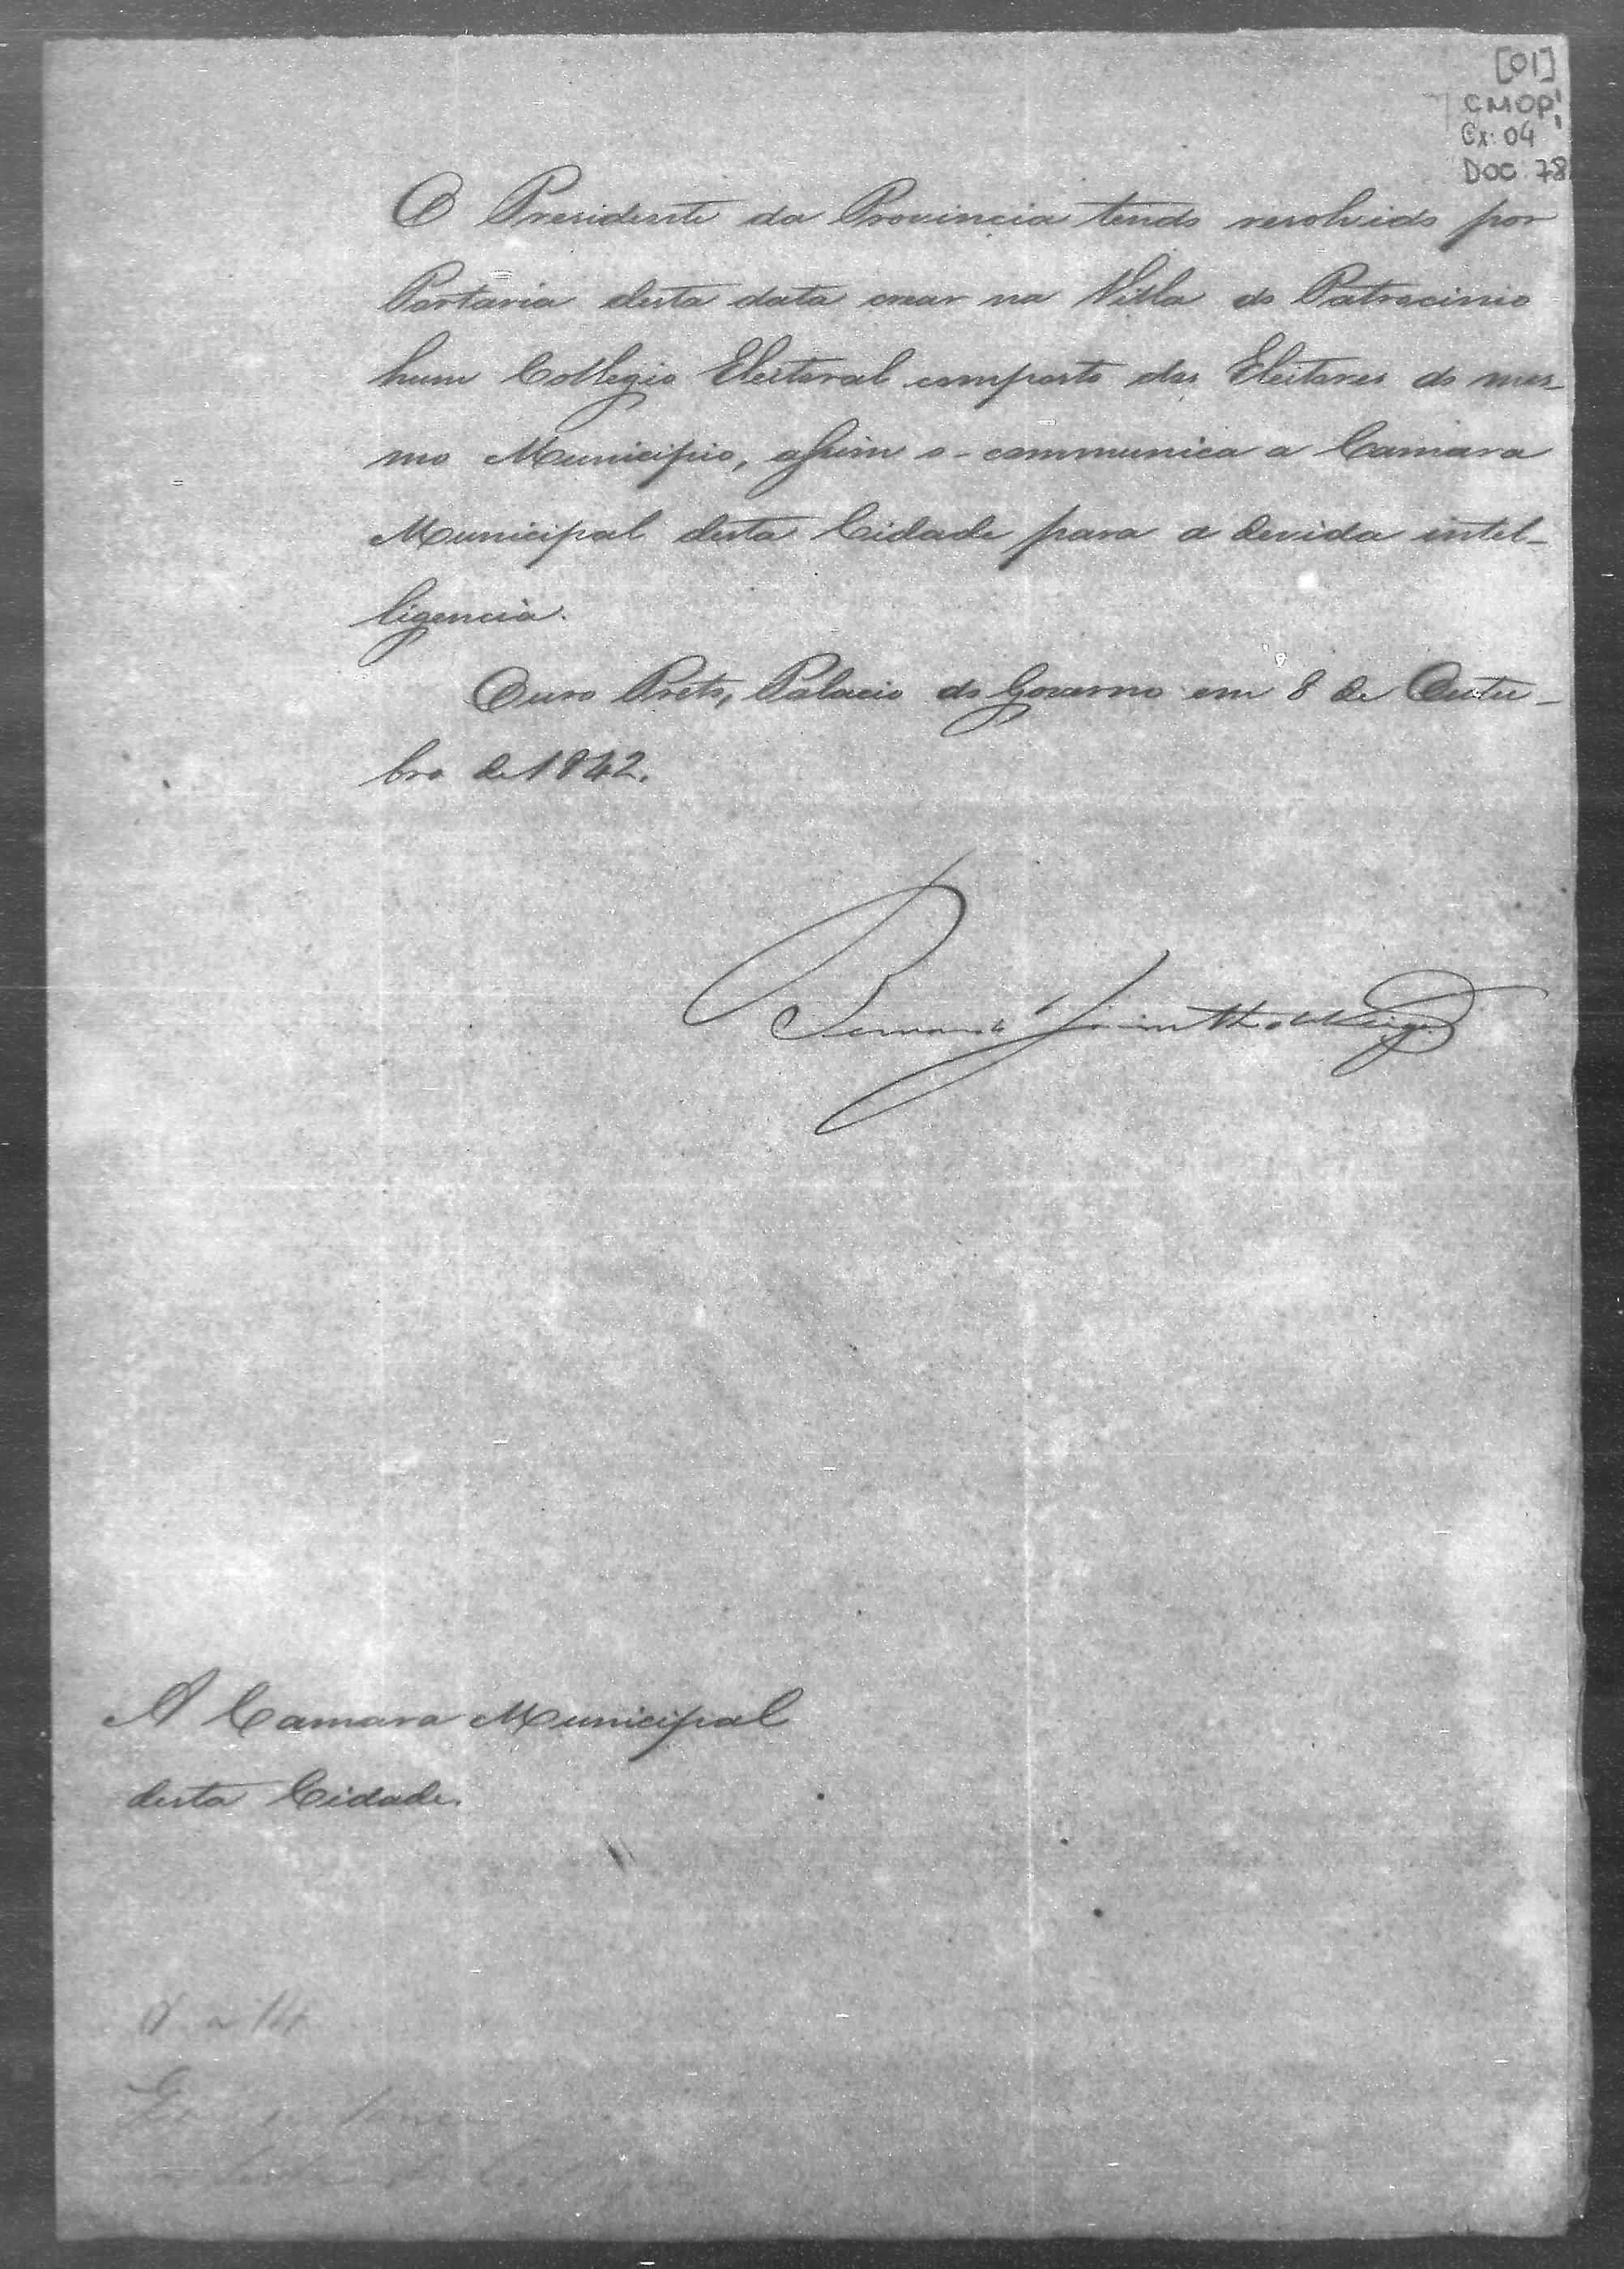 [01]
CMOP
Cx. 04
DOC. 78
O Presidente da Provincia tendo resolvido por
Portaria desta data crear na Villa do Patrocinio
hum Collegio Eleitoral composto dos Eleitores do mes-
mo Municipio, assim o-communica a Camara
Municipal desta Cidade para a devida intel-
ligencia.
Ouro Preto, Palacio do Governo em 8 de Outu-
bro de 1842.
Bernardo Jacintho da Veiga
A Camara Municipal
desta Cidade.